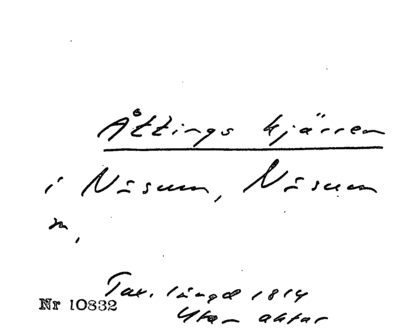 Åttings kjärren
i Näsum, Näsum
m,
Tax. längd 1814
Nr 10832
Utan aktar